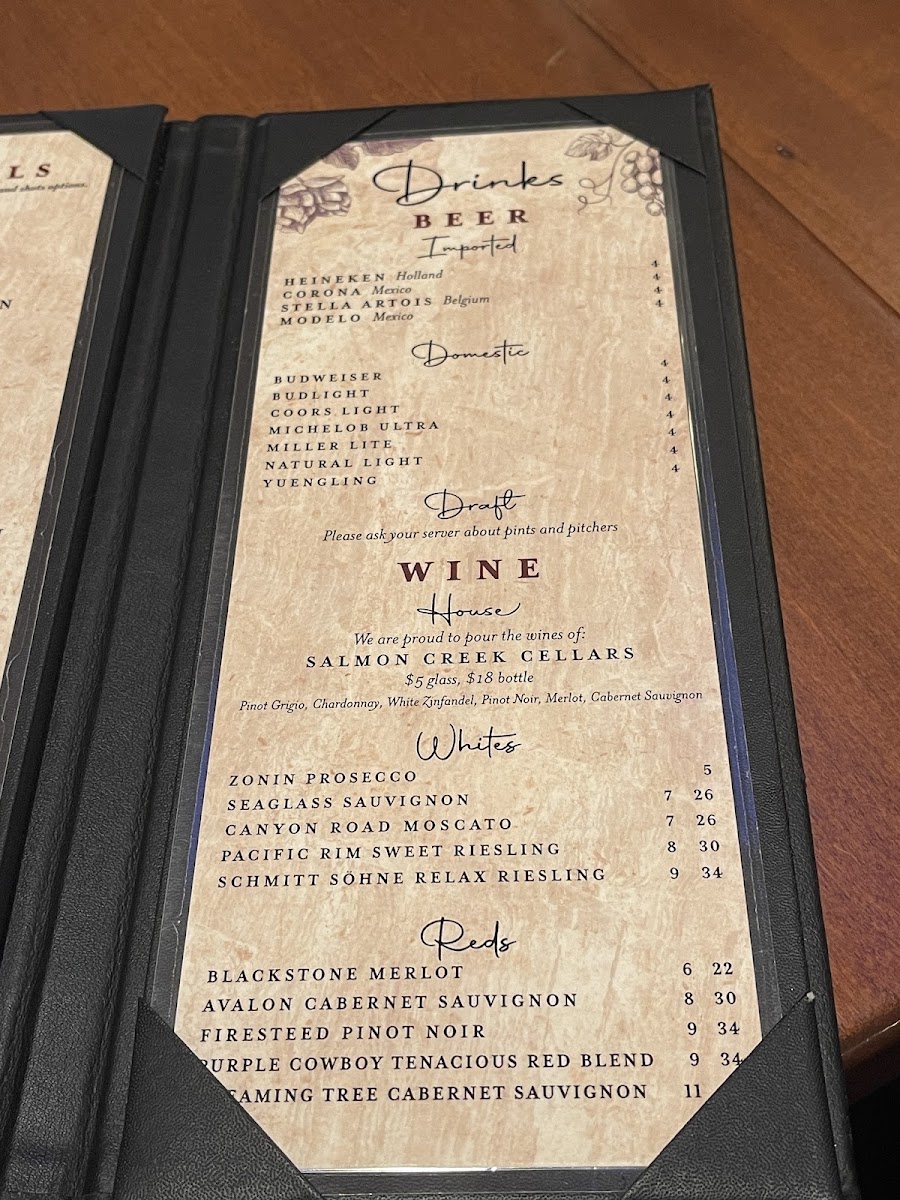 LS
and shots options.
N
Drinks
BEER
Imported
HEINEKEN Holland 4
CORONA Mexico 4
STELLA ARTOIS Belgium 4
MODELO Mexico 4
Domestic
BUDWEISER 4
BUDLIGHT 4
COORS LIGHT 4
MICHELOB ULTRA 4
MILLER LITE 4
NATURAL LIGHT 4
YUENGLING 4
Draft
Please ask your server about pints and pitchers
WINE
House
We are proud to pour the wines of:
SALMON CREEK CELLARS
$5 glass, $18 bottle
Pinot Grigio, Chardonnay, White Zinfandel, Pinot Noir, Merlot, Cabernet Sauvignon
Whites
ZONIN PROSECCO 5
SEAGLASS SAUVIGNON 7 26
CANYON ROAD MOSCATO 7 26
PACIFIC RIM SWEET RIESLING 8 30
SCHMITT SÖHNE RELAX RIESLING 9 34
Reds
BLACKSTONE MERLOT 6 22
AVALON CABERNET SAUVIGNON 8 30
FIRESTEED PINOT NOIR 9 34
PURPLE COWBOY TENACIOUS RED BLEND 9 34
EAMING TREE CABERNET SAUVIGNON 11